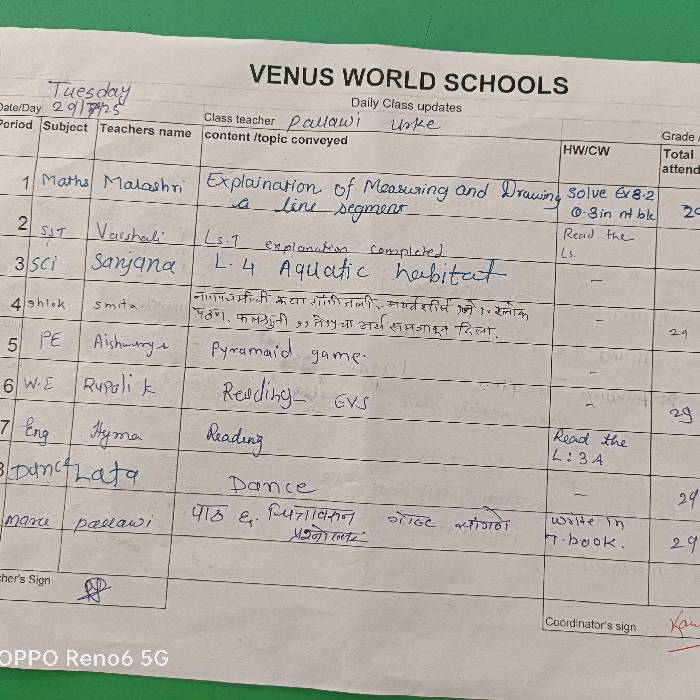 VENUS WORLD SCHOOLS
Daily Class updates
Tuesday
Date/Day 29/7/25
Class teacher Pallawi Urke
Grade
Period Subject Teachers name content /topic conveyed HW/CW Total
attend
1 Maths Malashri Explaination of Measuring and Drawing solve Ex 8.2
a line segment Q.3 in nt bk
2 SST Vaishali Ls.7 explanation completed Read the
Ls.
3 Sci Sanjana L. 4 Aquatic habitat –
4 shlok smita नागपंचमीची कथा सांगीतली.
अर्थ समजावून दिला. – 29
5 PE Aishwarya Pyramaid game. –
6 W.E Rupali k Reading EVS – 29
7 Eng Hyma Reading Read the
L:3A
8 Dance Lata Dance – 29
pallawi पाठ ६. write in
T.book. 29
cher's Sign
Coordinator's sign
OPPO Reno6 5G